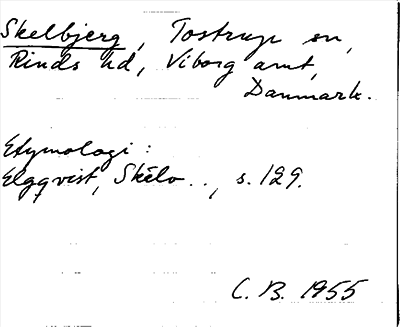 Skelbjerg, Tostrup sn,
Rinds hd, Viborg amt,
Danmark.
Etymologi:
Elgqvist, Skälv.., s. 129.
C. B. 1955